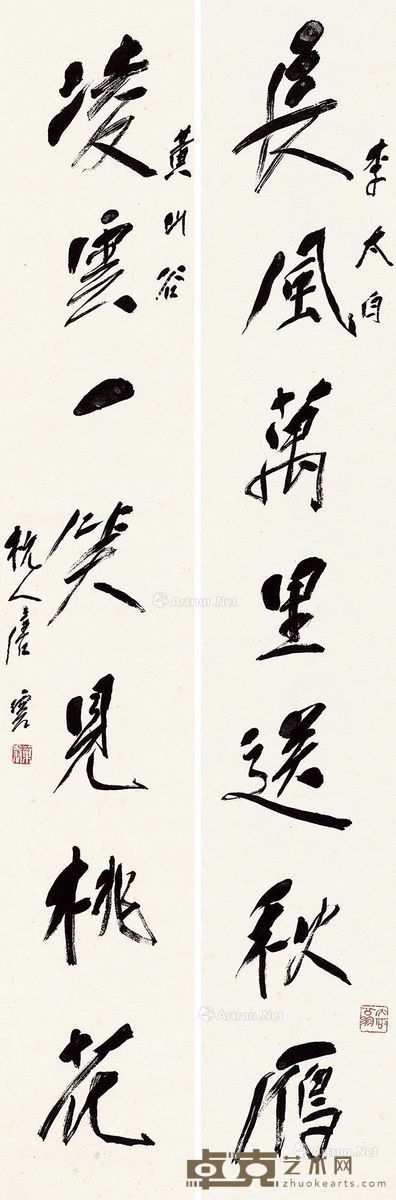 長風萬里送秋雁
李太白
凌雲一笑見桃花
黃山谷
杭人唐雲
Artron.Net
Artron.Net
Artron.Net
卓克艺术网
zhuokearts.com